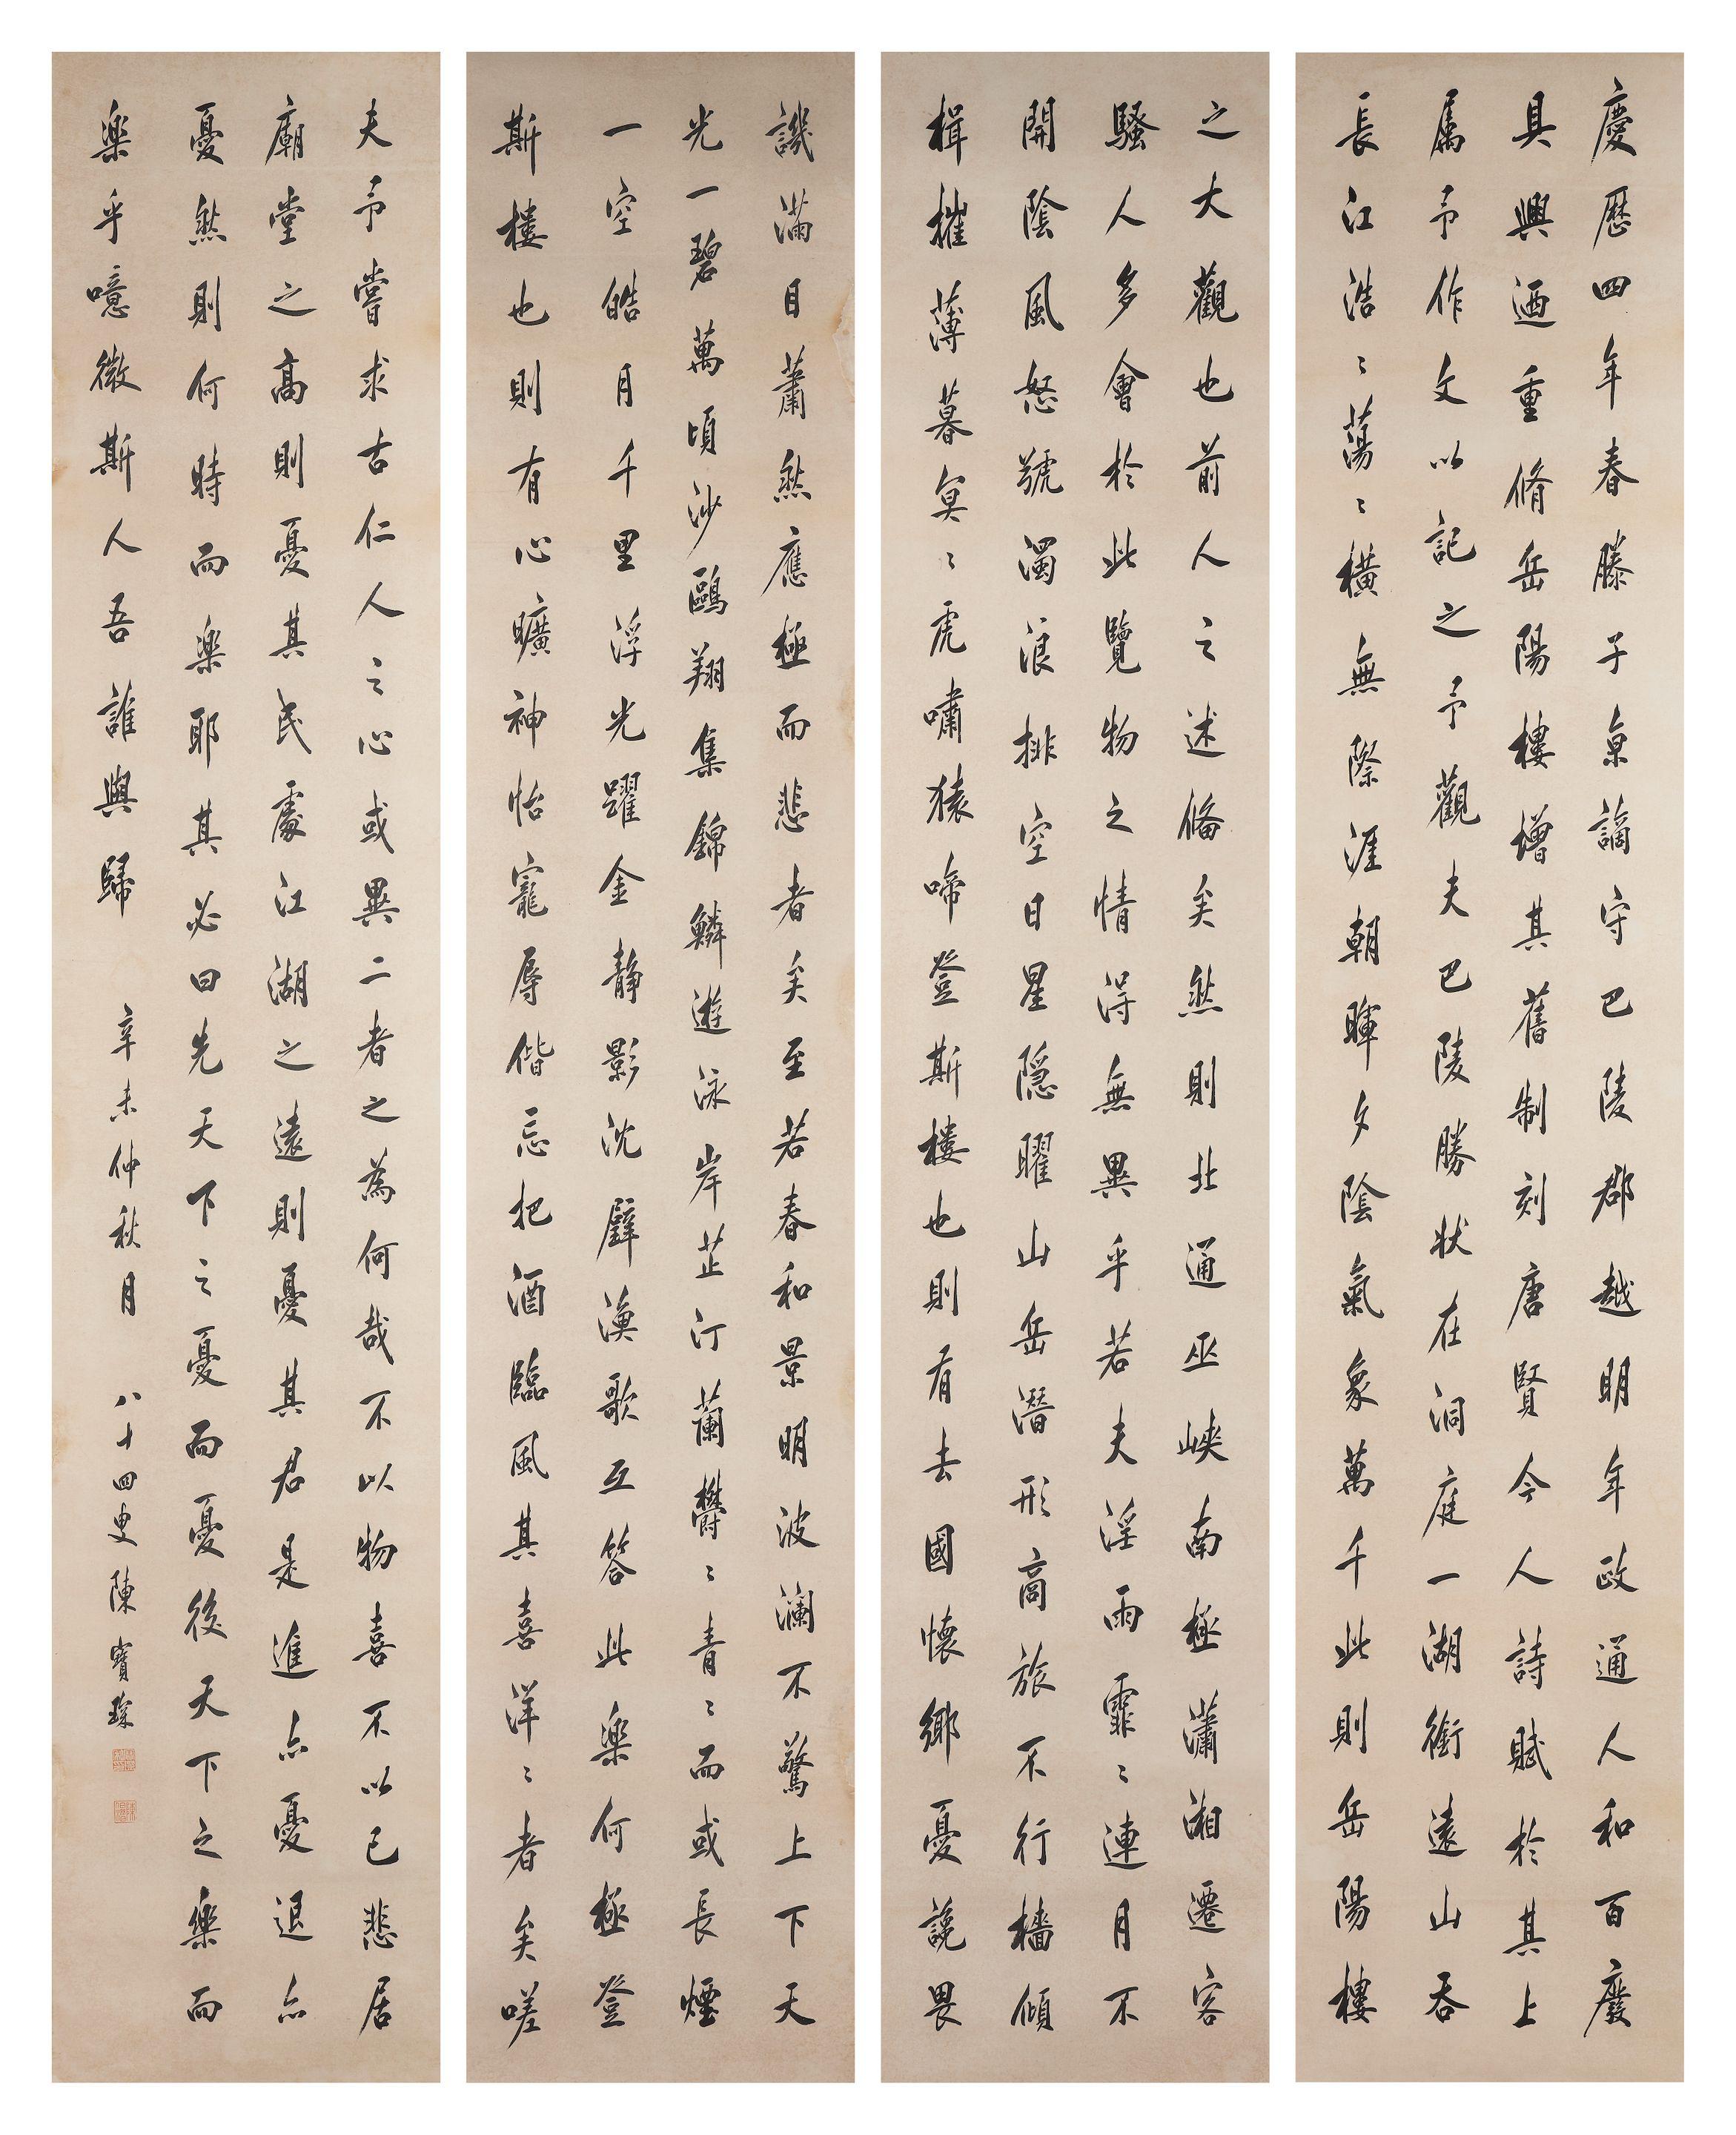 慶歷四年春滕子京謫守巴陵郡越明年政通人和百廢
具興迺重脩岳陽樓增其舊制刻唐賢今人詩賦於其上
属予作文以記之予觀夫巴陵勝狀在洞庭一湖銜遠山吞
長江浩〻蕩〻橫無際涯朝暉夕陰氣象萬千此則岳陽樓
之大觀也前人之述備矣然則北通巫峽南極瀟湘遷客
騷人多會於此覽物之情得無異乎若夫淫雨霏〻連月不
開陰風怒號濁浪排空日星隱曜山岳潛形商旅不行檣傾
楫摧薄暮冥〻虎嘯猿啼登斯樓也則有去國懷鄉憂讒畏
譏滿目蕭然應極而悲者矣至若春和景明波瀾不驚上下天
光一碧萬頃沙鷗翔集錦鱗遊泳岸芷汀蘭欝〻青〻而或長煙
一空皓月千里浮光躍金静影沈璧漁歌互答此樂何極登
斯樓也則有心曠神怡寵辱偕忘把酒臨風其喜洋〻者矣嗟
夫予嘗求古仁人之心或異二者之為何哉不以物喜不以己悲居
廟堂之高則憂其民處江湖之遠則憂其君是進亦憂退亦
憂然則何時而樂耶其必曰先天下之憂而憂後天下之樂而
樂乎噫微斯人吾誰與歸 辛未仲秋月 八十四叟陳寶琛